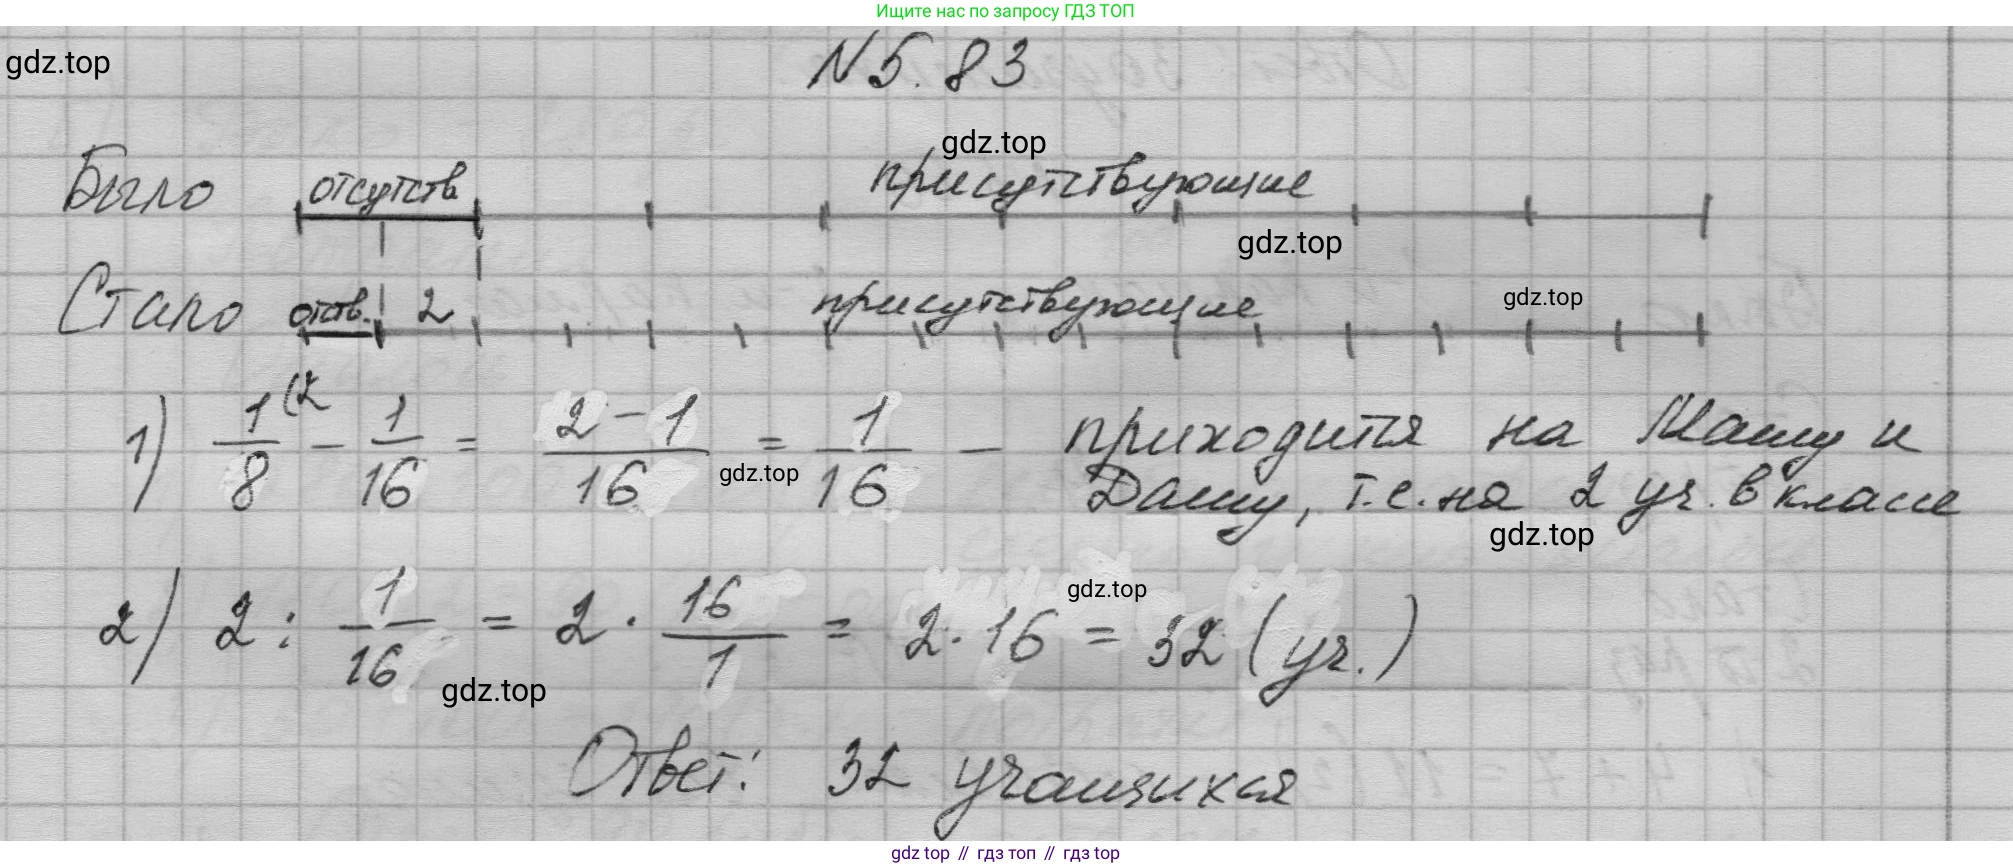 Ищите нас по запросу ГДЗ ТОП
gdz.top
N 5.83
gdz.top
Было отсутств присутствующие
gdz.top
Стало отств. 2 присутствующие
gdz.top
1) 1/8 (2 - 1/16 = (2-1)/16 = 1/16 — приходится на Машу и
gdz.top
Дашу, т.е. на 2 уч. в классе
gdz.top
gdz.top
2) 2 : 1/16 = 2 · 16/1 = 2 · 16 = 32 (уч.)
gdz.top
Ответ: 32 учащихся
gdz top // гдз топ // гдз top